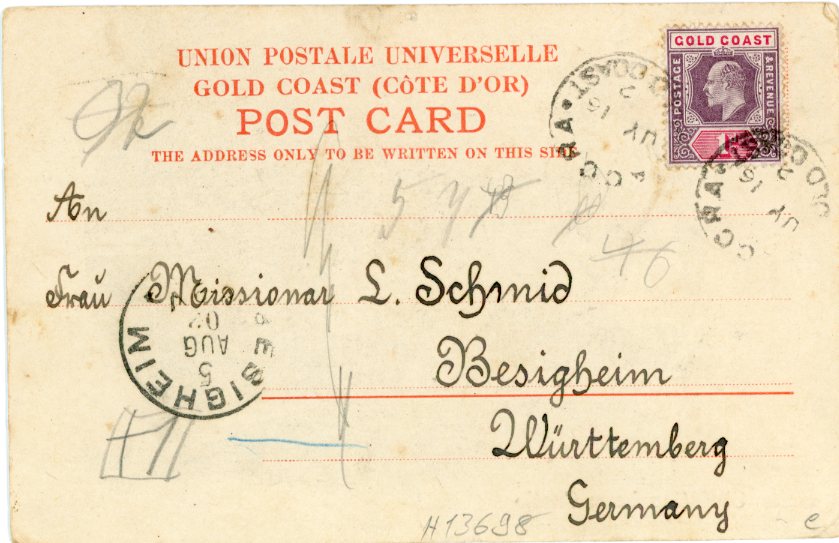 UNION POSTALE UNIVERSELLE
GOLD COAST (CôTE D'OR)
POST CARD
THE ADDRESS ONLY TO BE WRITTEN ON THIS SIDE
GOLD COAST
POSTAGE
& REVENUE
ACCRA
GOLD COAST
16
2
ACCRA
16
2
92
An
46
Frau Missionar L. Schmid
BESIGHEIM
5
AUG
02
Besigheim
Württemberg
Germany
H13698
e